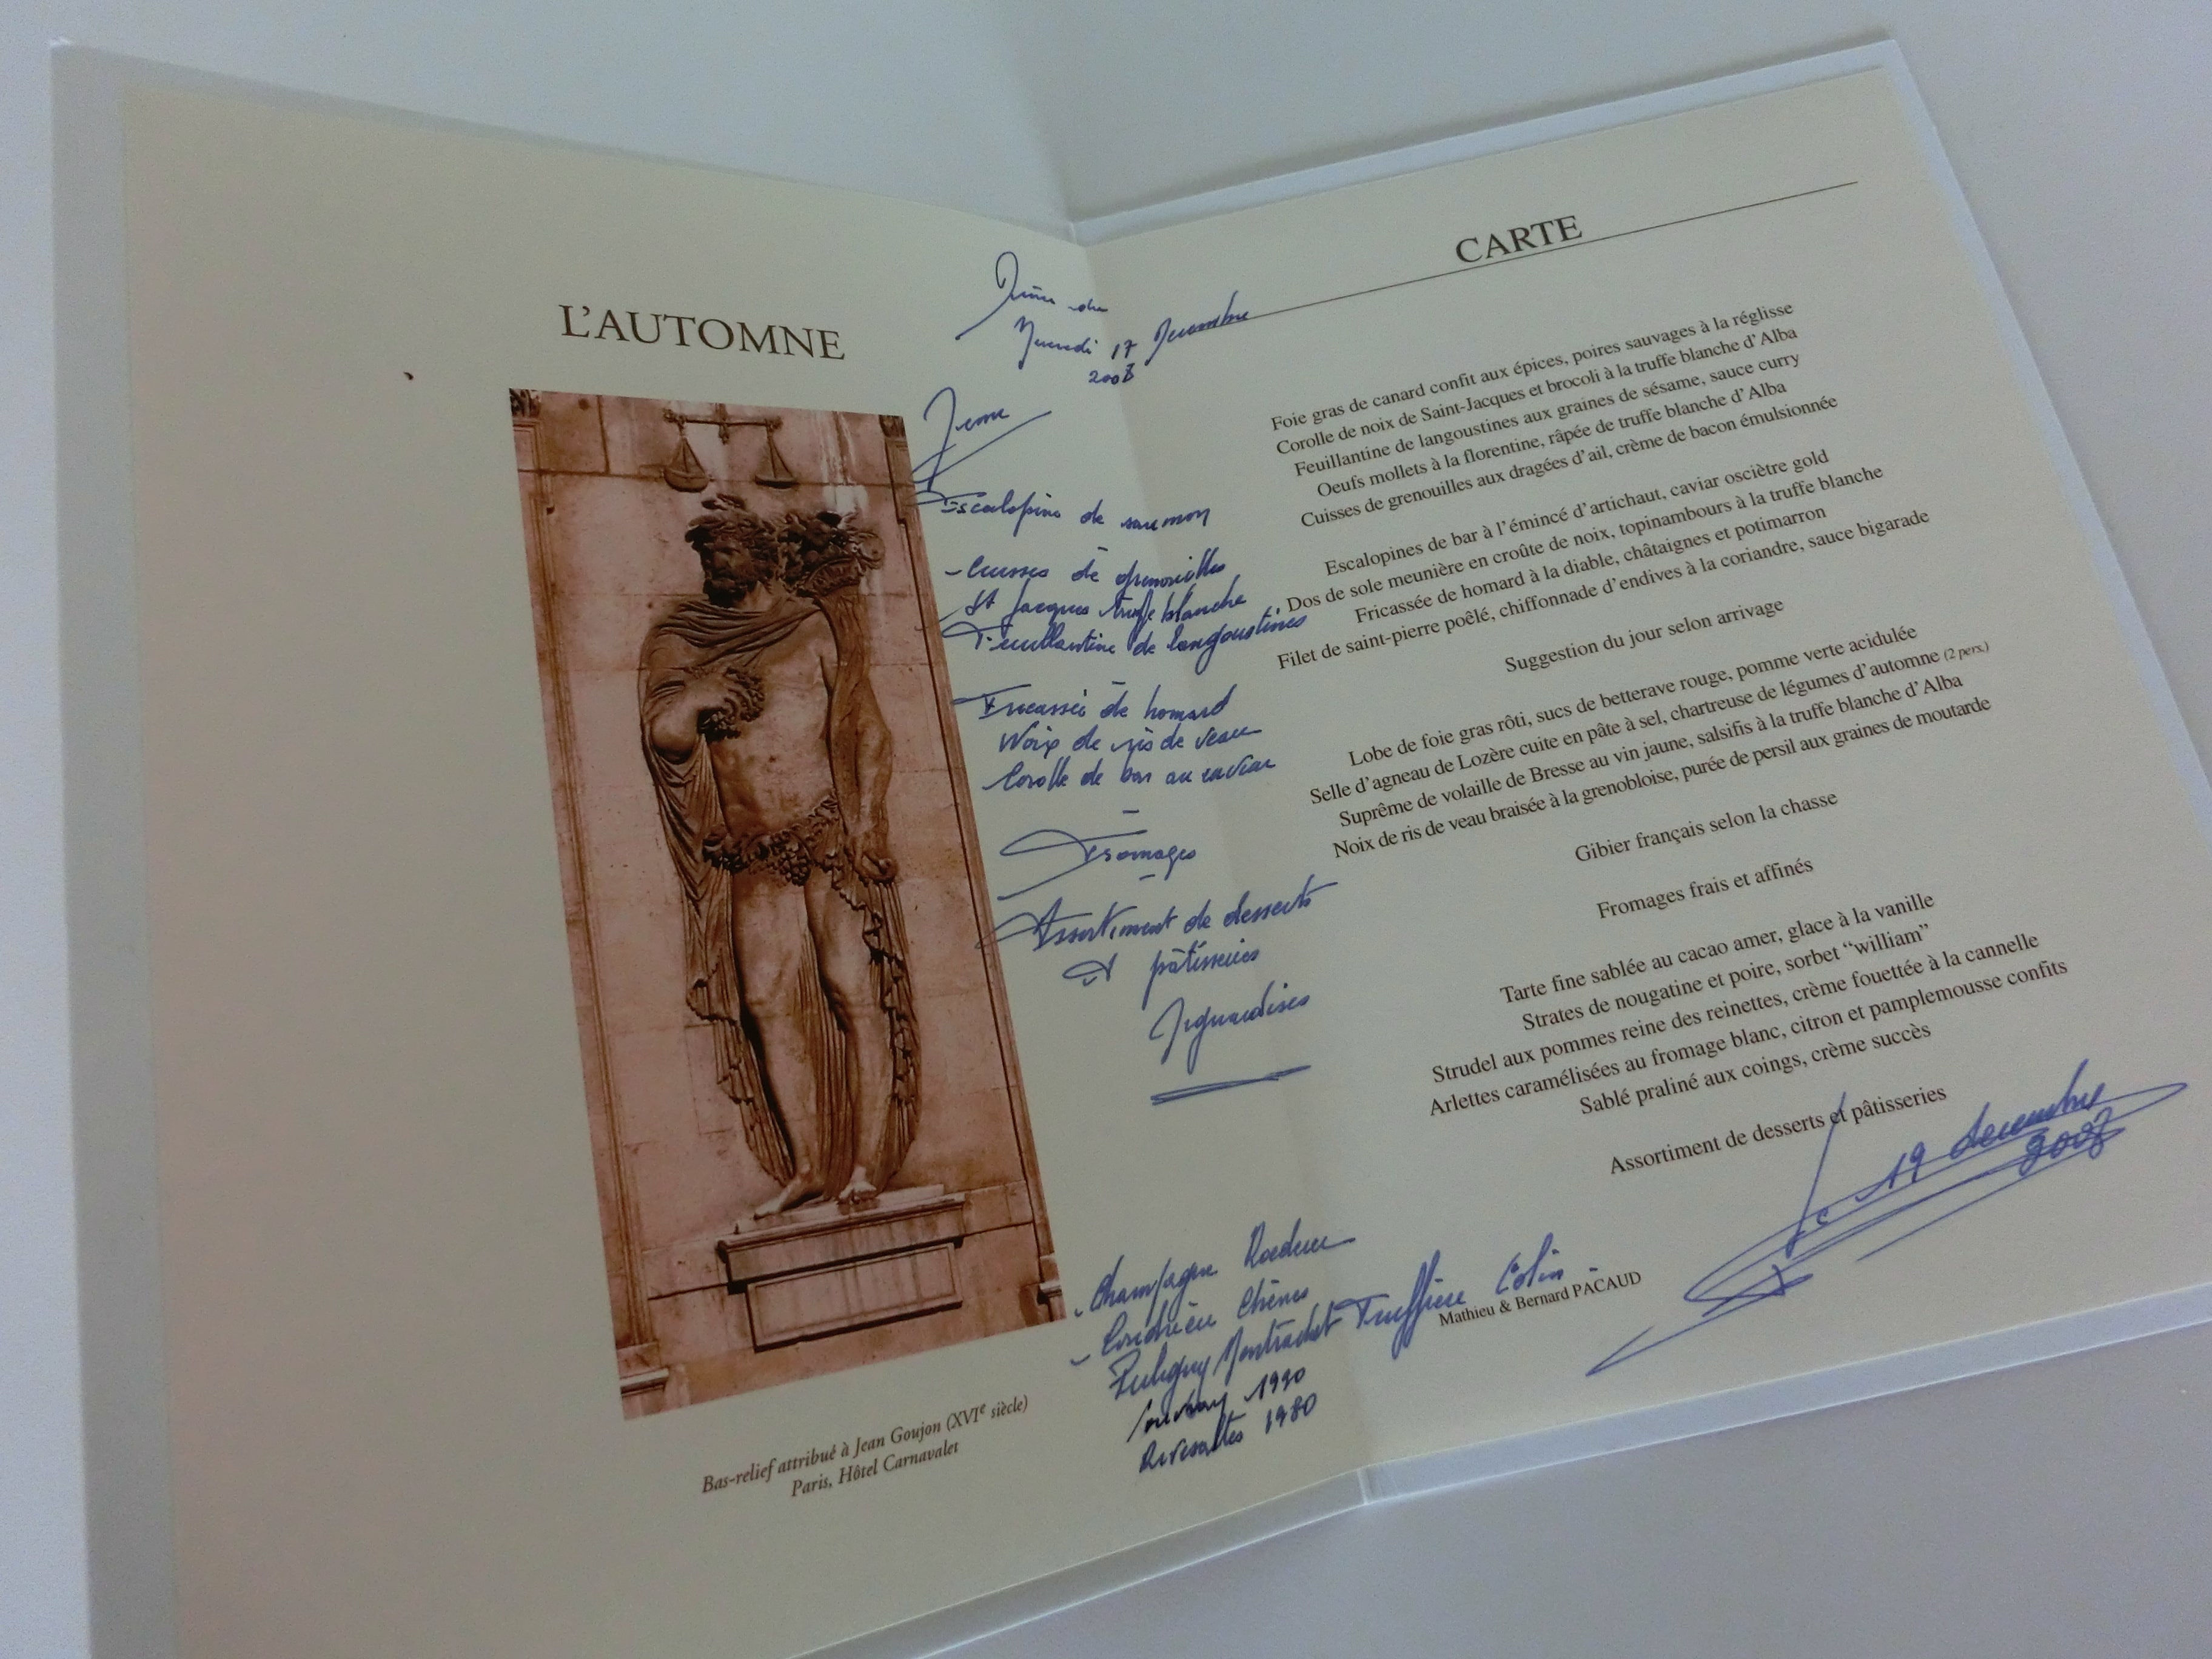 L'AUTOMNE
Bas-relief attribué à Jean Goujon (XVIe siècle)
Paris, Hôtel Carnavalet
du
17 Decembre
2008
Escalopine de saumon
- Cuisses de grenouilles
St Jacques truffe blanche
Feuillantine de langoustines
Fricassée de homard
Noix de ris de veau
Corolle de bar au caviar
Fromages
Assortiment de desserts
et pâtisseries
- Champagne Roederer
- Condrieu Chènes
Puligny Montrachet Truffière Colin
1990
Rivesaltes 1980
CARTE
Foie gras de canard confit aux épices, poires sauvages à la réglisse
Corolle de noix de Saint-Jacques et brocoli à la truffe blanche d'Alba
Feuillantine de langoustines aux graines de sésame, sauce curry
Oeufs mollets à la florentine, râpée de truffe blanche d'Alba
Cuisses de grenouilles aux dragées d'ail, crème de bacon émulsionnée
Escalopines de bar à l'émincé d'artichaut, caviar osciètre gold
Dos de sole meunière en croûte de noix, topinambours à la truffe blanche
Fricassée de homard à la diable, châtaignes et potimarron
Filet de saint-pierre poêlé, chiffonnade d'endives à la coriandre, sauce bigarade
Suggestion du jour selon arrivage
Lobe de foie gras rôti, sucs de betterave rouge, pomme verte acidulée
Selle d'agneau de Lozère cuite en pâte à sel, chartreuse de légumes d'automne (2 pers.)
Suprême de volaille de Bresse au vin jaune, salsifis à la truffe blanche d'Alba
Noix de ris de veau braisée à la grenobloise, purée de persil aux graines de moutarde
Gibier français selon la chasse
Fromages frais et affinés
Tarte fine sablée au cacao amer, glace à la vanille
Strates de nougatine et poire, sorbet “william”
Strudel aux pommes reine des reinettes, crème fouettée à la cannelle
Arlettes caramélisées au fromage blanc, citron et pamplemousse confits
Sablé praliné aux coings, crème succès
Assortiment de desserts et pâtisseries
Le 19 decembre
2008
Mathieu & Bernard PACAUD